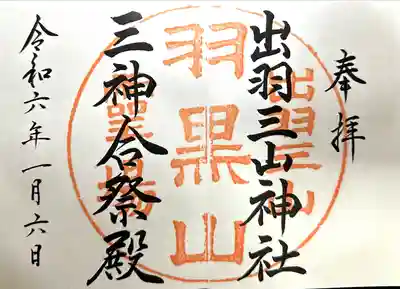 奉拝
出羽三山神社
羽黒山
三神合祭殿
令和六年一月六日